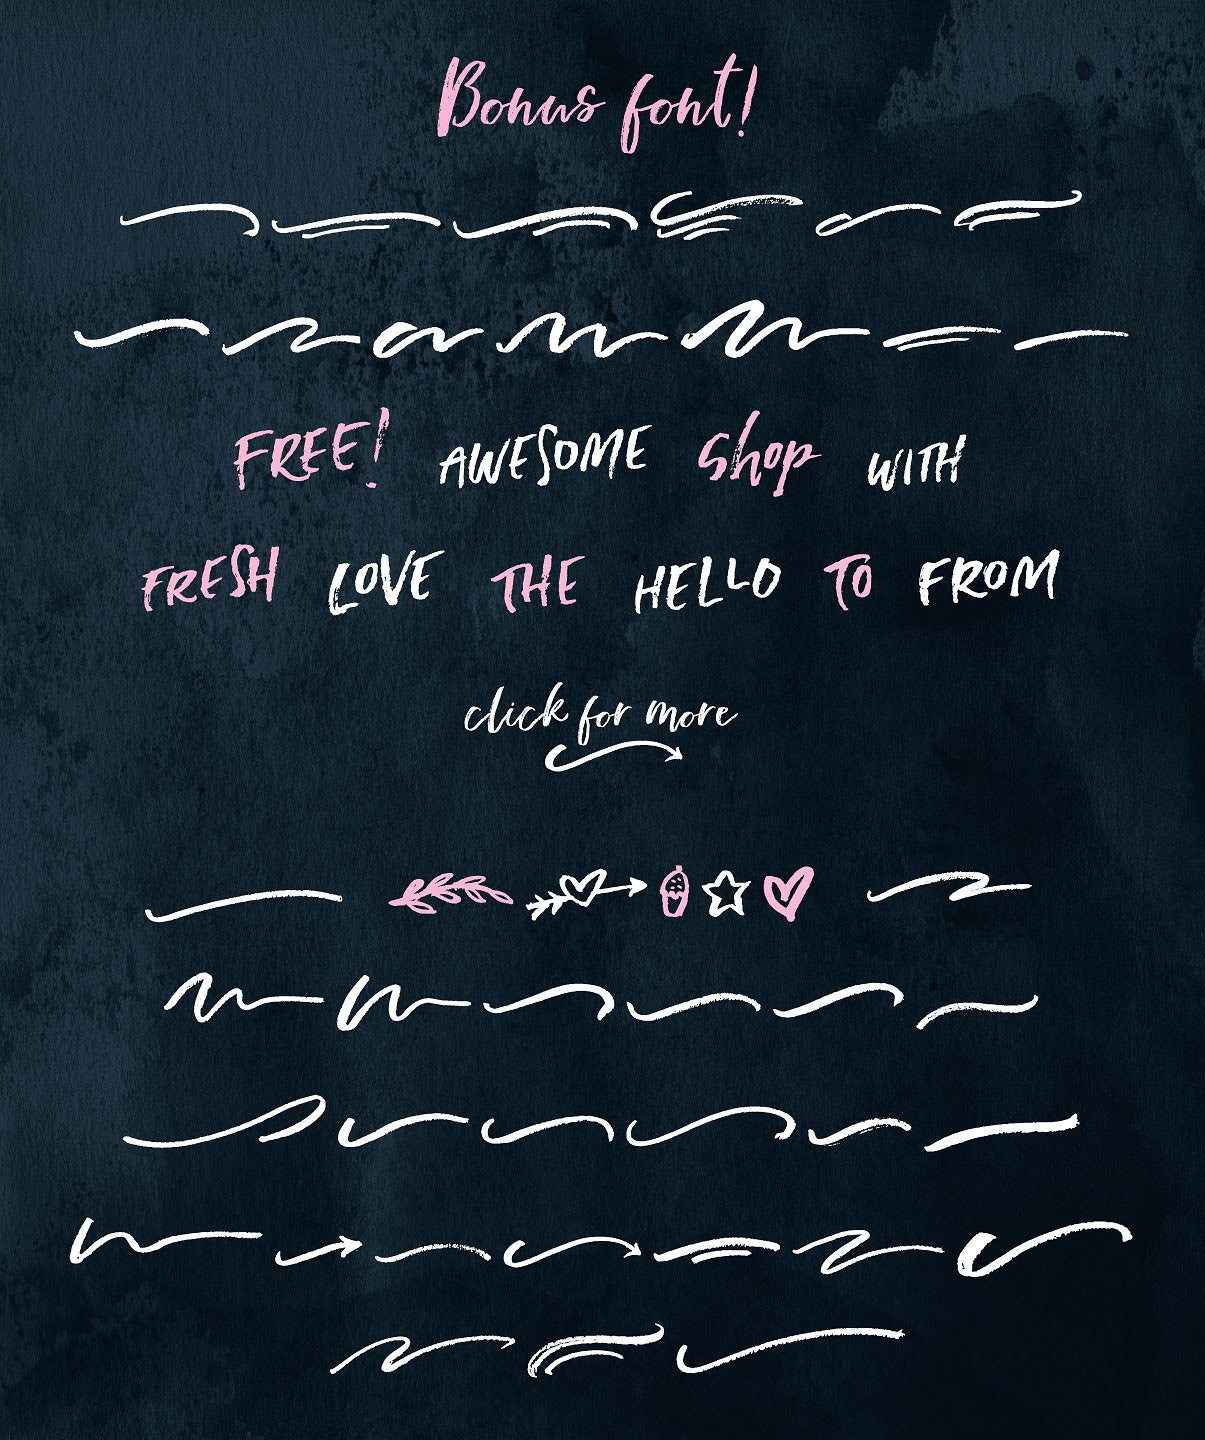 Bonus font!
FREE! AWESOME shop WITH
FRESH LOVE THE HELLO TO FROM
click for more